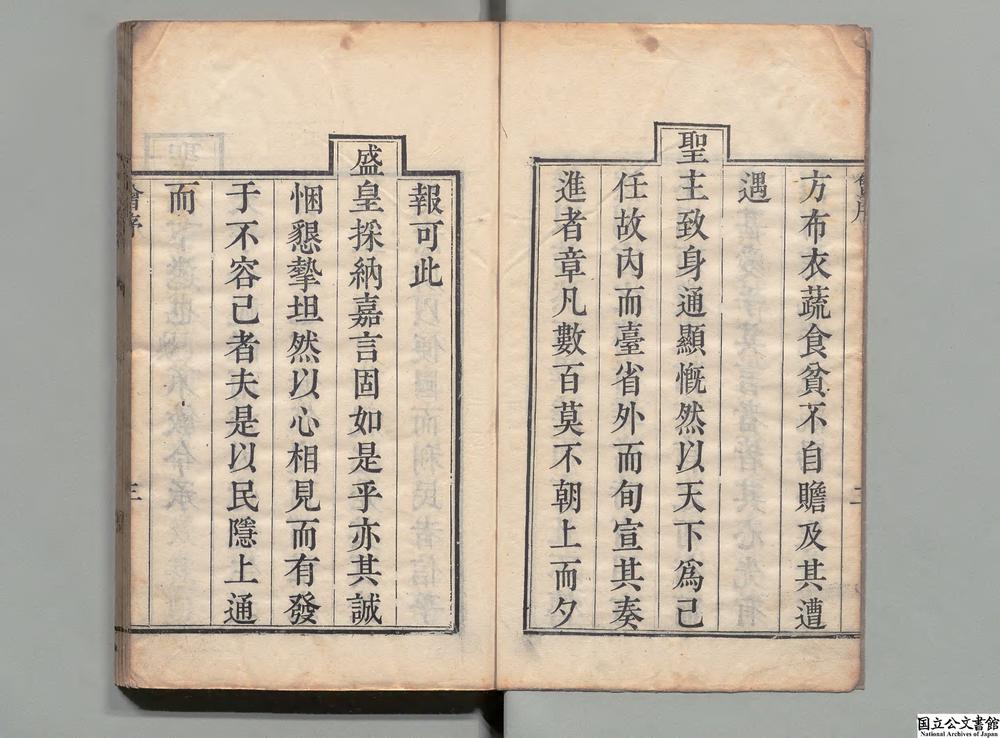 方布衣蔬食貧不自贍及其遭
遇
聖主致身通顯慨然以天下為己
任故內而臺省外而旬宣其奏
進者章凡數百莫不朝上而夕
報可此
盛皇採納嘉言固如是乎亦其誠
悃懇摯坦然以心相見而有發
于不容已者夫是以民隱上通
而
三
国立公文書館
National Archives of Japan